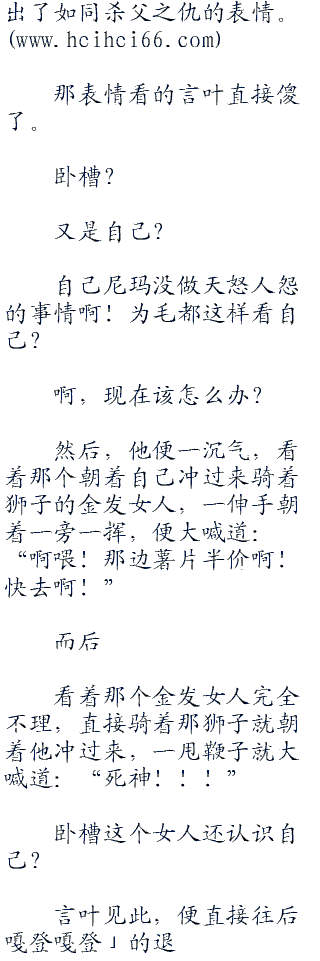 出了如同杀父之仇的表情。
(www.hcihci66.com)
那表情看的言叶直接傻
了。
卧槽？
又是自己？
自己尼玛没做天怒人怨
的事情啊！为毛都这样看自
己？
啊，现在该怎么办？
然后，他便一沉气，看
着那个朝着自己冲过来骑着
狮子的金发女人，一伸手朝
着一旁一挥，便大喊道：
“啊喂！那边薯片半价啊！
快去啊！”
而后
看着那个金发女人完全
不理，直接骑着那狮子就朝
着他冲过来，一甩鞭子就大
喊道：“死神！！！”
卧槽这个女人还认识自
己？
言叶见此，便直接往后
嘎登嘎登」的退